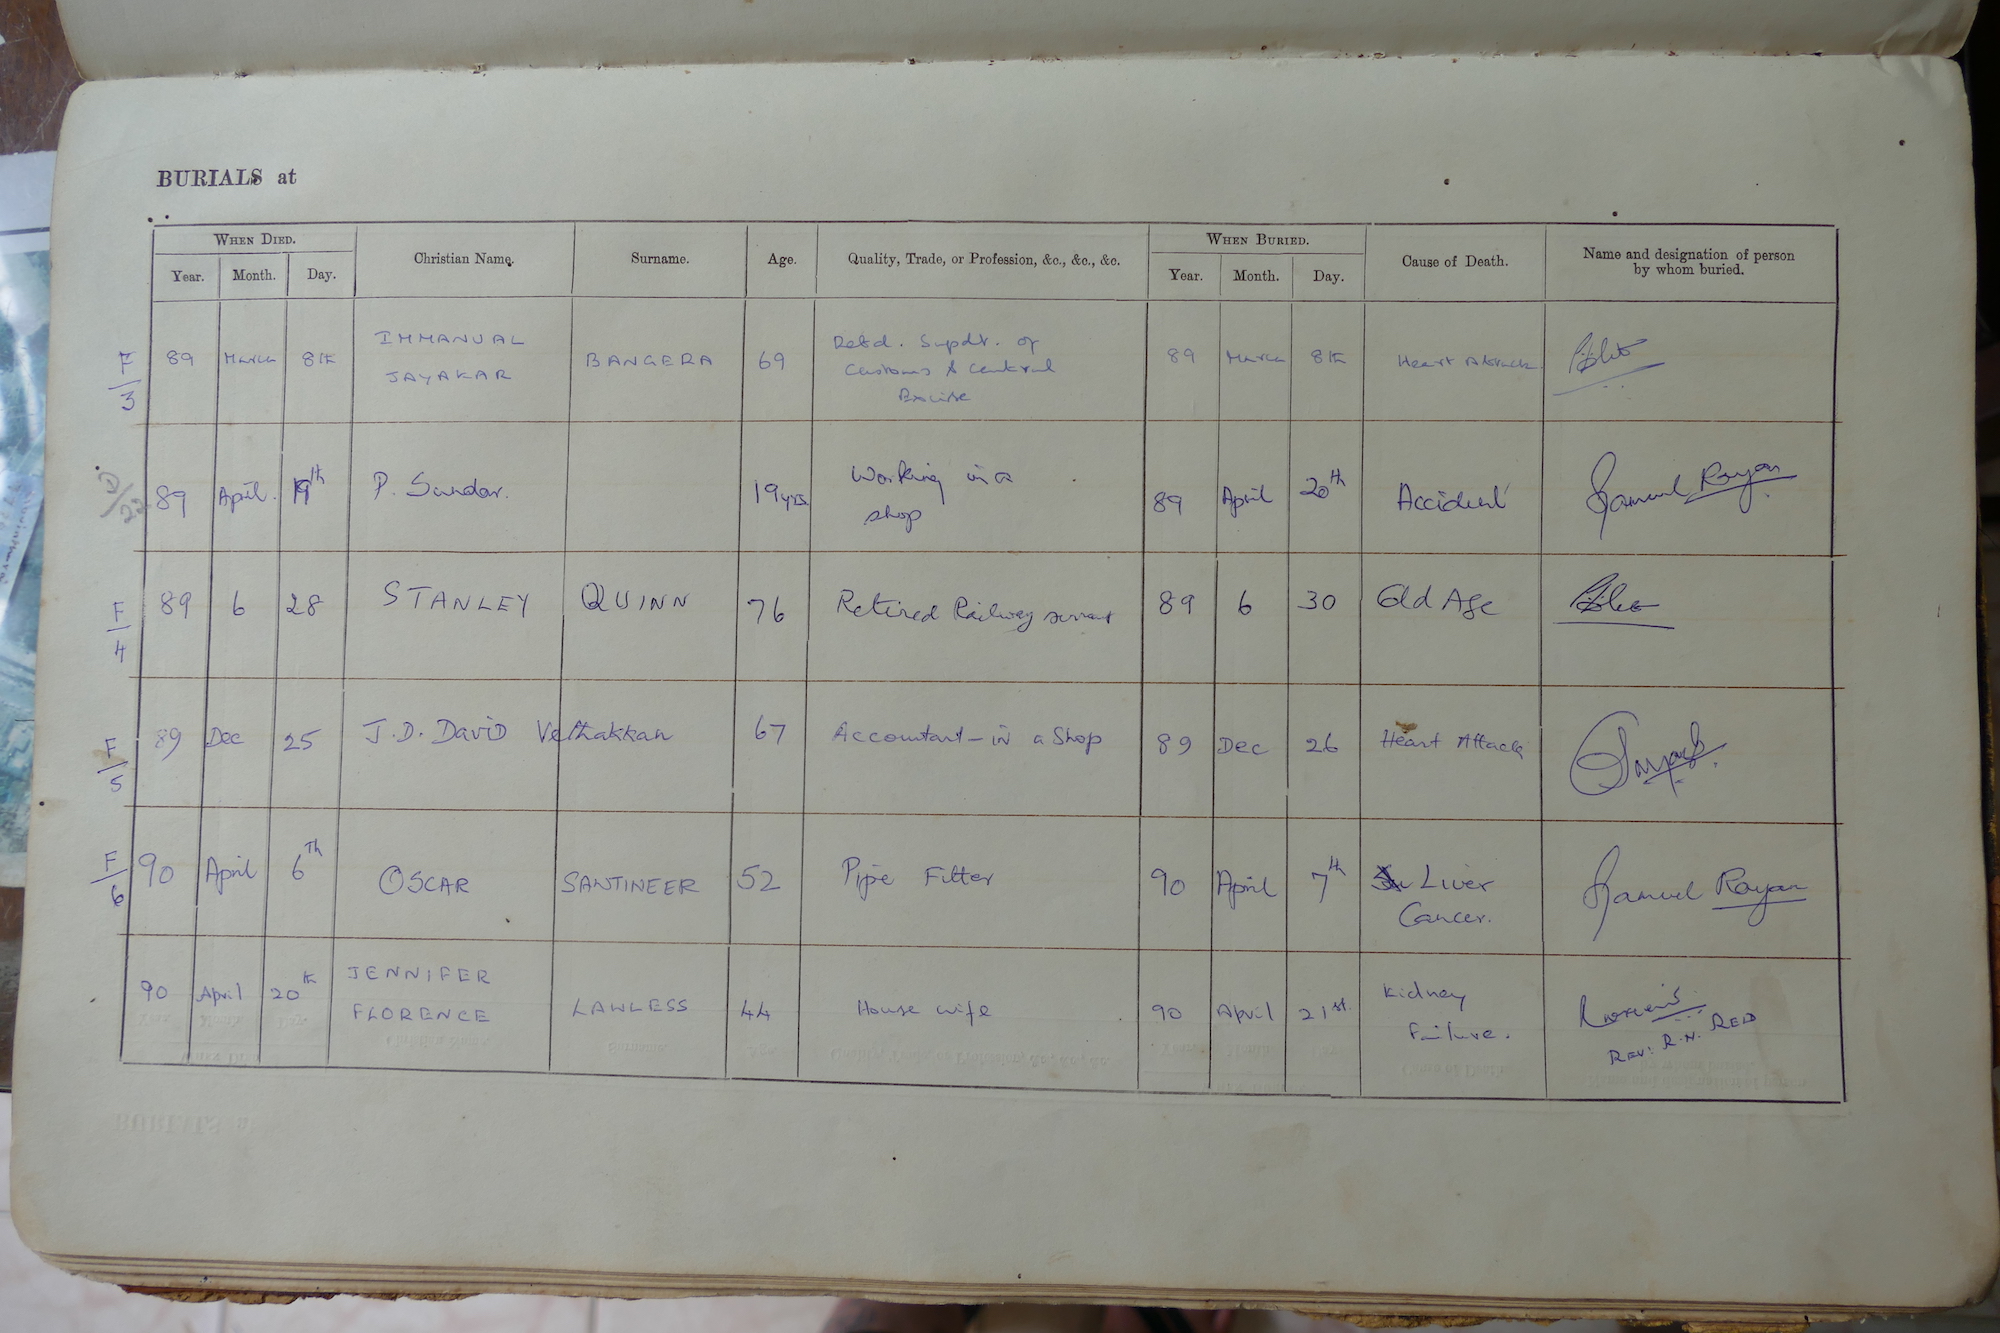 BURIALS at
WHEN DIED. Christian Name. Surname. Age. Quality, Trade, or Profession, &c., &c., &c. WHEN BURIED. Cause of Death. Name and designation of person
by whom buried.
Year. Month. Day. Year. Month. Day.
F/3 89 March 8th IMMANUAL JAYAKAR BANGERA 69 Retd. Supdt. of Customs & Central Excise 89 March 8th Heart Attack
D/22 89 April 19th P. Sundar. 19yrs Working in a shop 89 April 20th Accident Samuel Rayan
F/4 89 6 28 STANLEY QUINN 76 Retired Railway servant 89 6 30 Old Age
F/5 89 Dec 25 J.D. David Vethakkan 67 Accountant - in a Shop 89 Dec 26 Heart Attack
F/6 90 April 6Th OSCAR SANTINEER 52 Pipe Fitter 90 April 7th Liver Cancer. Samuel Rayan
90 April 20th JENNIFER FLORENCE LAWLESS 44 House wife 90 April 21st. Kidney Failure. REV: R.N. RED